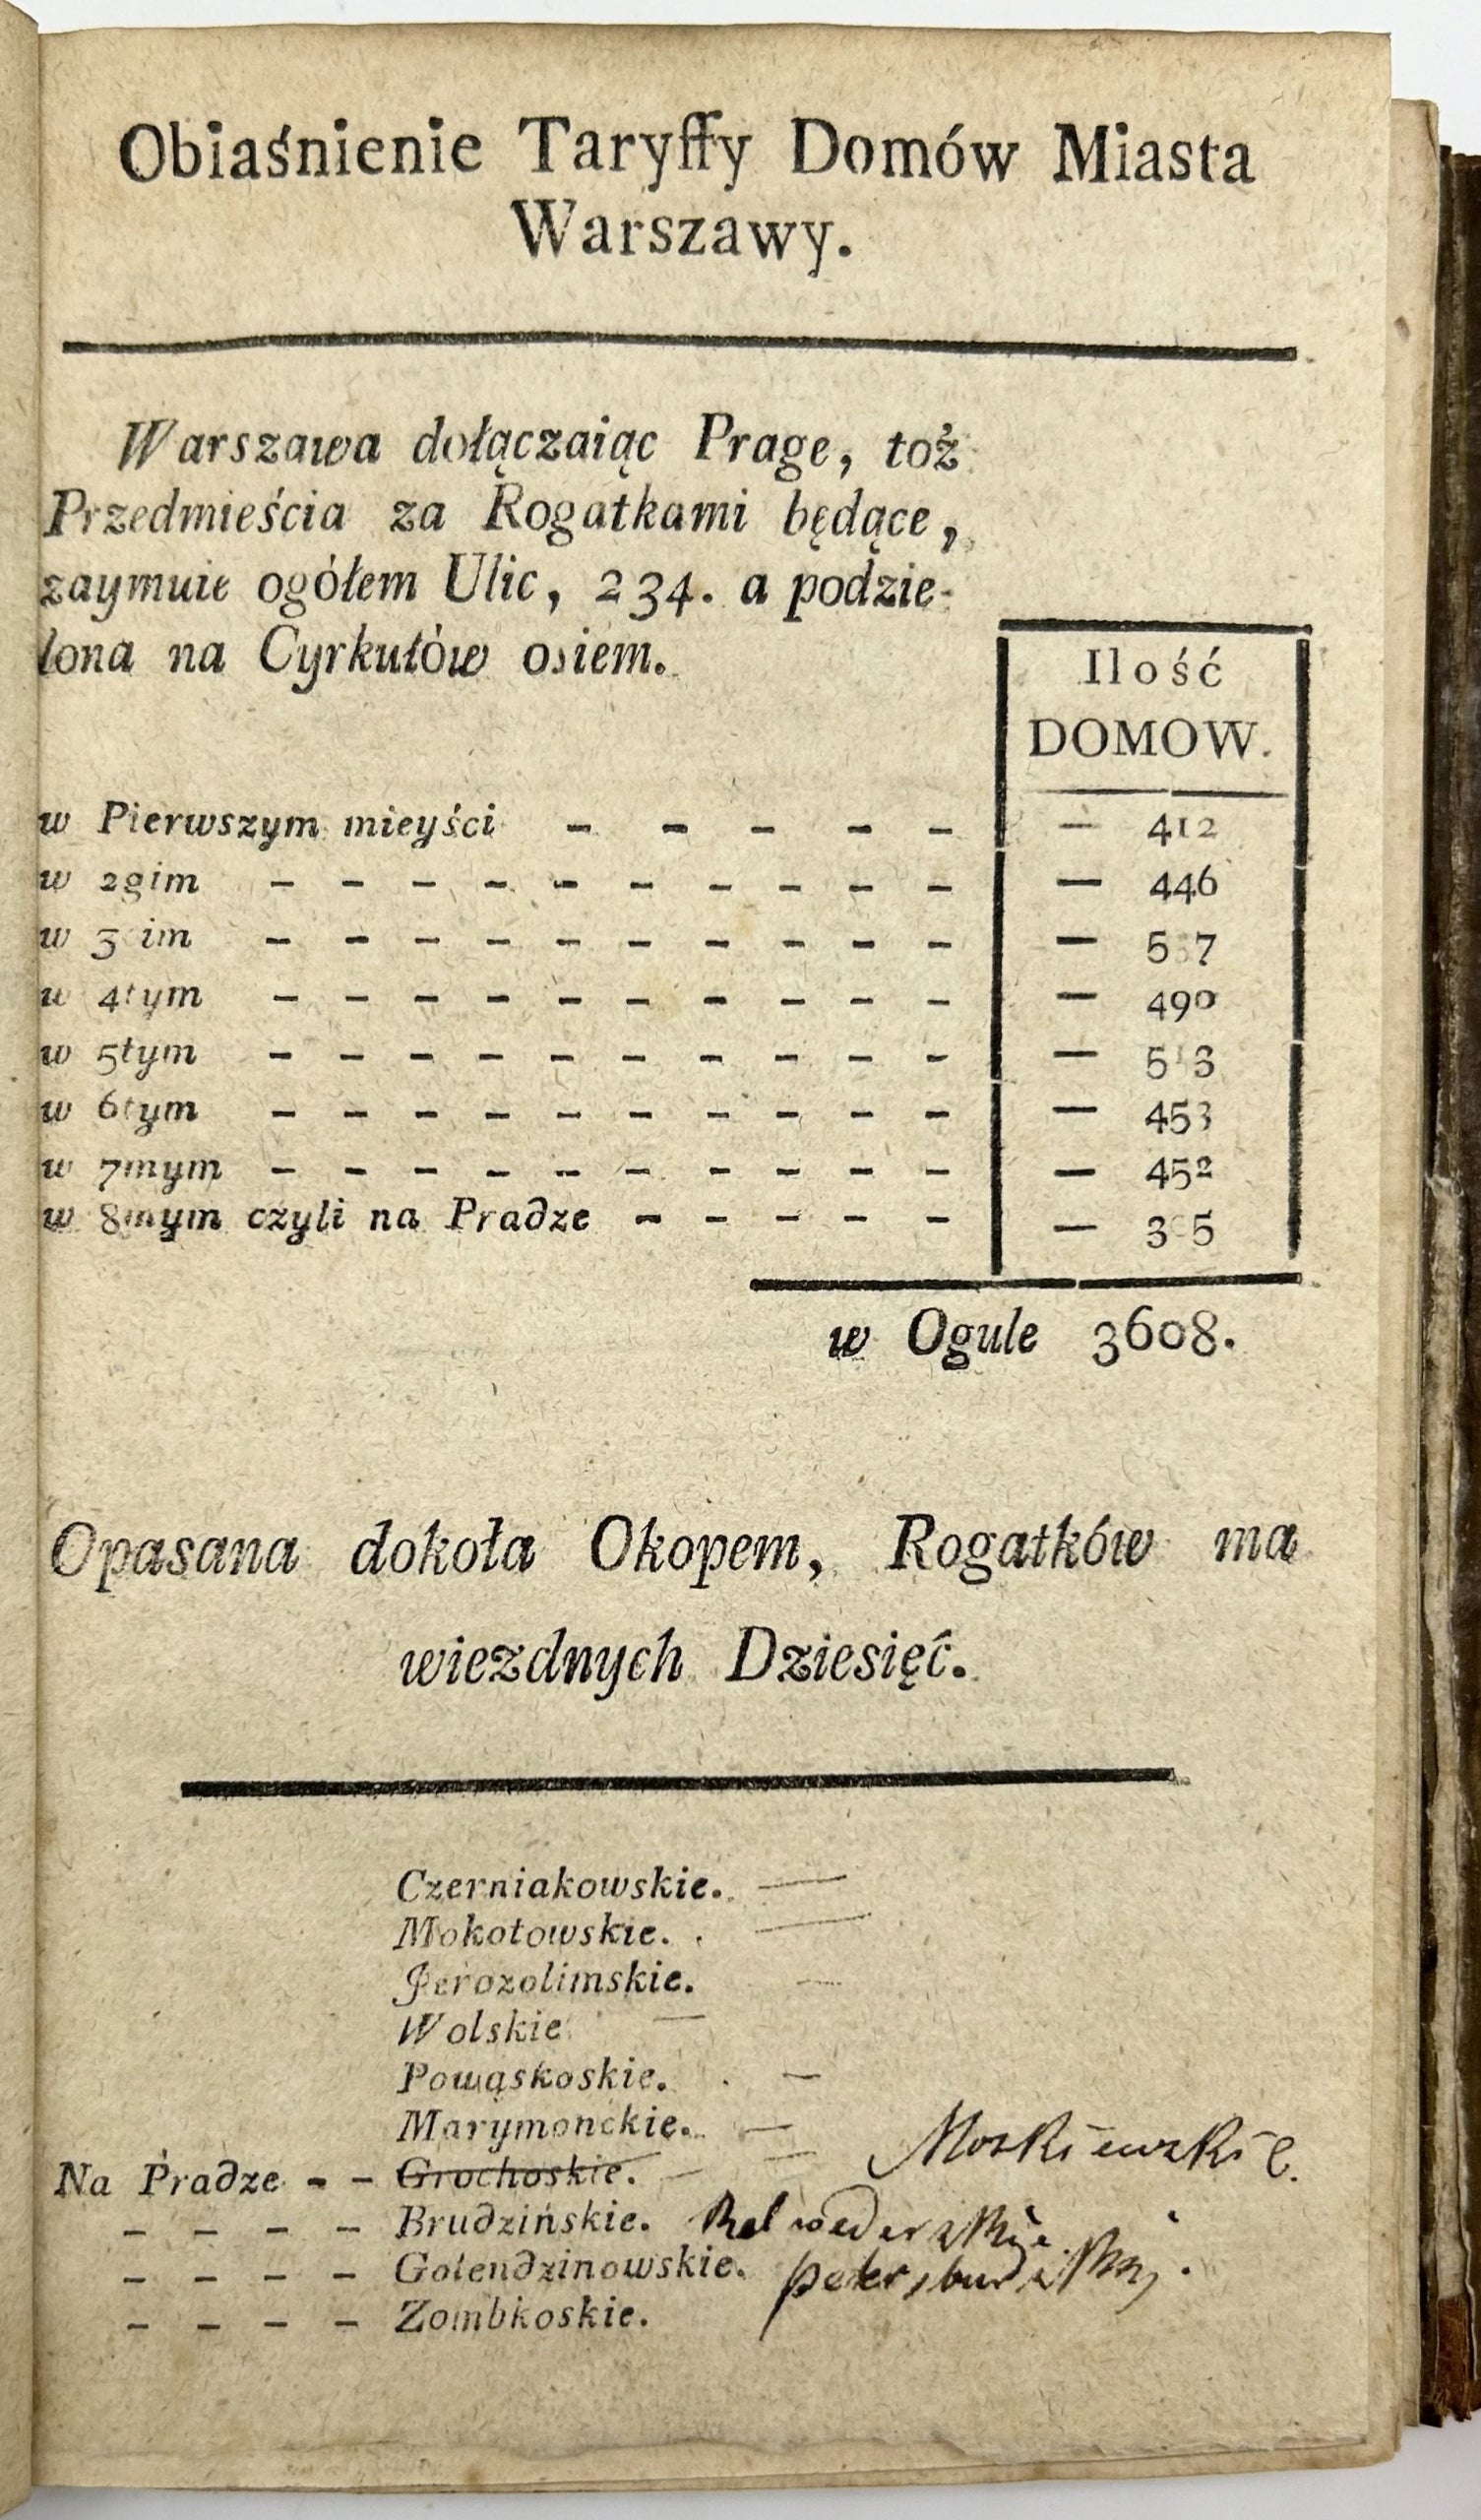 Obiaśnienie Taryffy Domów Miasta
Warszawy.
Warszawa dołączaiąc Prage, toż
Przedmieścia za Rogatkami będące,
zaymuie ogółem Ulic, 234. a podzie-
lona na Cyrkułów osiem.
Ilość
DOMOW.
w Pierwszym mieyści - - - - - — 412
w 2gim - - - - - - - - - - — 446
w 3cim - - - - - - - - - - —
w 4tym - - - - - - - - - - — 490
w 5tym - - - - - - - - - - — 513
w 6tym - - - - - - - - - - — 453
w 7mym - - - - - - - - - - — 452
w 8mym czyli na Pradze - - - - - —
w Ogule 3608.
Opasana dokoła Okopem, Rogatków ma
wiezdnych Dziesięć.
Czerniakowskie. —
Mokotowskie. —
Jerozolimskie. —
Wolskie —
Powąskoskie. —
Marymonckie. —
Na Pradze - - Grochoskie. — Moskiewskie.
- - - - Brudzińskie. Belwederskie
- - - - Golendzinowskie. petersburskij.
- - - - Zombkoskie.